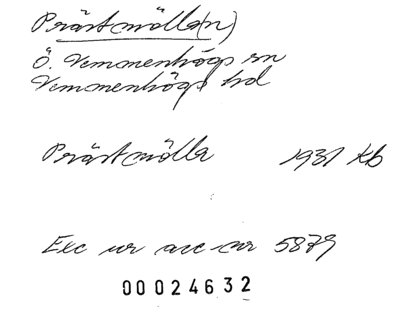 Prästmölla(n)
Ö. Vemmenhögs sn
Vemmenhögs hd
Prästmölla 1931 kb
Exc ur acc nr 5879
00024632